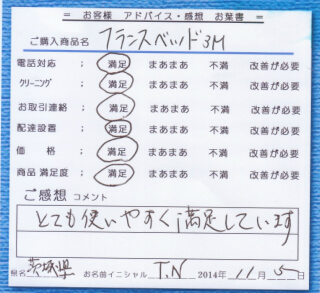 ＝ お客様 アドバイス・感想 お葉書 ＝
ご購入商品名 フランスベッド3M
電話対応 ； 満足 まあまあ 不満 改善が必要
クリーニング ； 満足 まあまあ 不満 改善が必要
お取引連絡 ； 満足 まあまあ 不満 改善が必要
配達設置 ； 満足 まあまあ 不満 改善が必要
価格 ； 満足 まあまあ 不満 改善が必要
商品 満足度 ； 満足 まあまあ 不満 改善が必要
ご感想 コメント
とても使いやすく満足しています
県名 茨城県 お名前イニシャル T.N 2014年 11月 5日